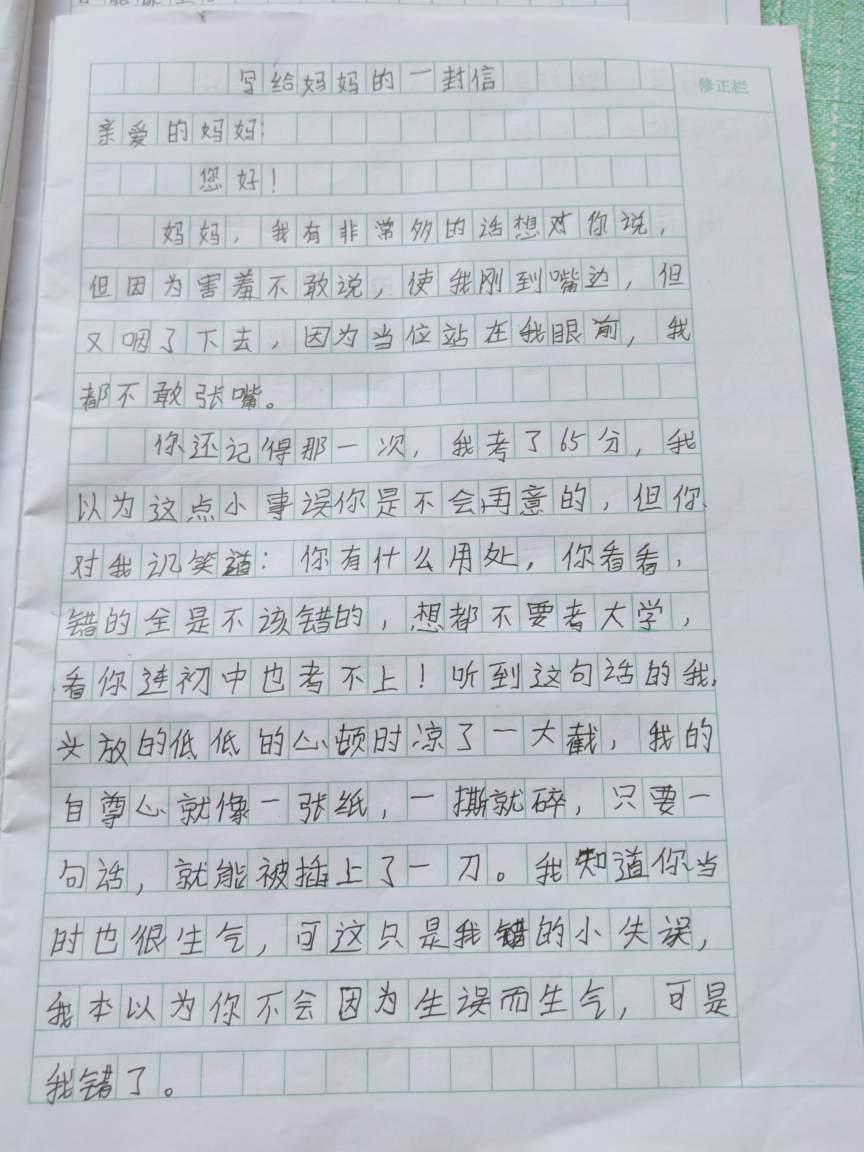 写给妈妈的一封信
修正栏
亲爱的妈妈:
您好!
妈妈,我有非常多的话想对你说,
但因为害羞不敢说,使我刚到嘴边,但
又咽了下去,因为当位站在我眼前,我
都不敢张嘴。
你还记得那一次,我考了65分,我
以为这点小事误你是不会再意的,但你
对我讥笑道:你有什么用处,你看看,
错的全是不该错的,想都不要考大学,
看你连初中也考不上!听到这句话的我,
头放的低低的心顿时凉了一大截,我的
自尊心就像一张纸,一撕就碎,只要一
句话,就能被插上了一刀。我知道你当
时也很生气,可这只是我错的小失误,
我本以为你不会因为生误而生气,可是
我错了。